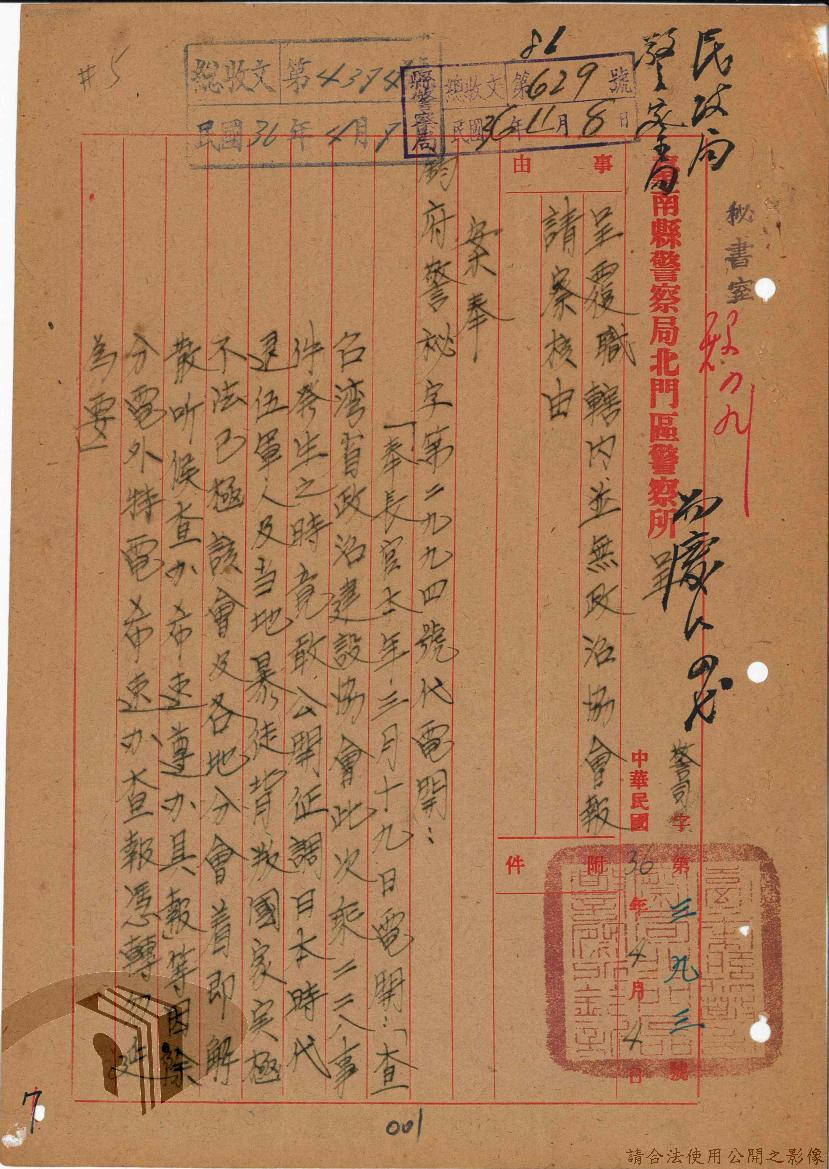 #5
總收文 第4374號
民國36年4月8日
縣警察局
總收文 第629號
民國36年11月8日
81
民政局
警察局
秘書室
臺南縣警察局北門區警察所 呈
警司字第三九三號
中華民國36年4月4日
事由
附件
呈覆職轄内並無政治協會報
請察核由
案奉
鈞府警秘字第二九九四號代電開：
「奉長官公署三月十九日電開：「查
台湾省政治建設協會此次乘二二八事
件發生之時竟敢公開征調日本時代
退伍軍人及当地暴徒背叛國家实極
不法已極該會及各地分會着即解
散听候查办希速遵办具報」等因除
分電外特電希速办查報憑轉勿延
為要」
001
7
請合法使用公開之影像